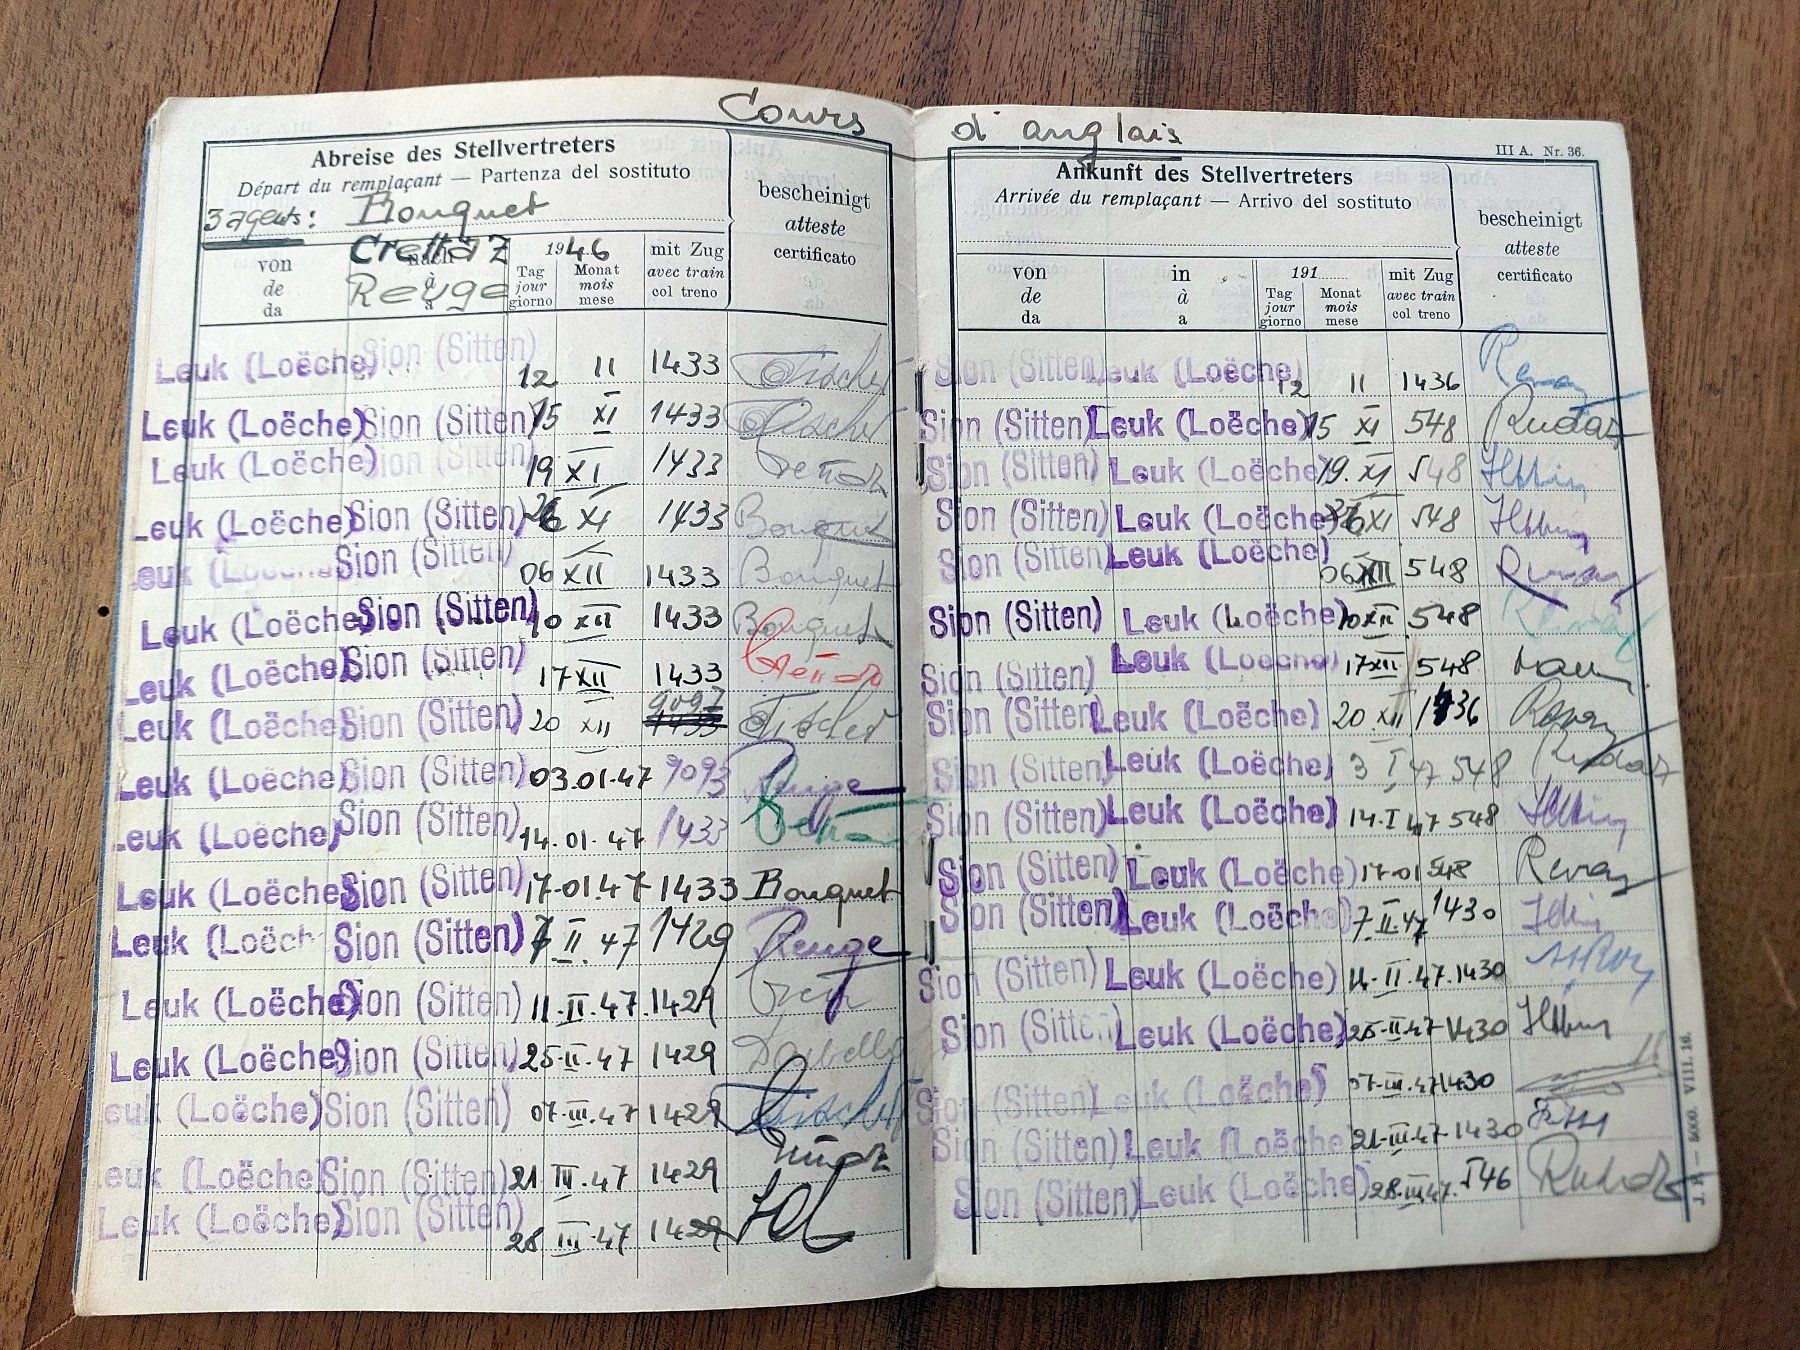 Cours d'anglais
Abreise des Stellvertreters
Départ du remplaçant — Partenza del sostituto
3 agents: Bouquet
Crettaz
Reuge
bescheinigt
atteste
certificato
von
de
da
nach
à
a
1946
Tag
jour
giorno
Monat
mois
mese
mit Zug
avec train
col treno
Leuk (Loëche) Sion (Sitten) 12 11 1433 Fischer
Leuk (Loëche) Sion (Sitten) 15 XI 1433 Fischer
Leuk (Loëche) Sion (Sitten) 19 XI 1433
Leuk (Loëche) Sion (Sitten) 26 XI 1433 Bouquet
Leuk (Loëche) Sion (Sitten) 06 XII 1433 Bouquet
Leuk (Loëche) Sion (Sitten) 10 XII 1433 Bouquet
Leuk (Loëche) Sion (Sitten) 17 XII 1433
Leuk (Loëche) Sion (Sitten) 20 XII 9097 Fischer
Leuk (Loëche) Sion (Sitten) 03.01.47 9093 Reuge
Leuk (Loëche) Sion (Sitten) 14.01.47 1433
Leuk (Loëche) Sion (Sitten) 17.01.47 1433 Bouquet
Leuk (Loëche) Sion (Sitten) 7 II.47 1429 Reuge
Leuk (Loëche) Sion (Sitten) 11.II.47. 1429
Leuk (Loëche) Sion (Sitten) 25.II.47 1429
Leuk (Loëche) Sion (Sitten) 07.III.47 1429 Fischer
Leuk (Loëche) Sion (Sitten) 21 III.47 1429
Leuk (Loëche) Sion (Sitten) 28 III.47 1429
III A. Nr. 36.
Ankunft des Stellvertreters
Arrivée du remplaçant — Arrivo del sostituto
bescheinigt
atteste
certificato
von
de
da
in
à
a
191......
Tag
jour
giorno
Monat
mois
mese
mit Zug
avec train
col treno
Sion (Sitten) Leuk (Loëche) 12 11 1436 Revaz
Sion (Sitten) Leuk (Loëche) 15 XI 548 Rudaz
Sion (Sitten) Leuk (Loëche) 19. XI 548
Sion (Sitten) Leuk (Loëche) 26 XI 548
Sion (Sitten) Leuk (Loëche) 06 XII 548 Revaz
Sion (Sitten) Leuk (Loëche) 10 XII 548
Sion (Sitten) Leuk (Loëche) 17 XII 548
Sion (Sitten) Leuk (Loëche) 20 XII 1436 Revaz
Sion (Sitten) Leuk (Loëche) 3 I 47 548 Rudaz
Sion (Sitten) Leuk (Loëche) 14.I 47 548
Sion (Sitten) Leuk (Loëche) 17.01 548 Revaz
Sion (Sitten) Leuk (Loëche) 7.II.47 1430
Sion (Sitten) Leuk (Loëche) 11.II.47. 1430
Sion (Sitten) Leuk (Loëche) 25.II.47 1430
Sion (Sitten) Leuk (Loëche) 07.III.47 1430
Sion (Sitten) Leuk (Loëche) 21.III.47 1430
Sion (Sitten) Leuk (Loëche) 28.III.47. 546 Rudaz
5000. VIII. 16.